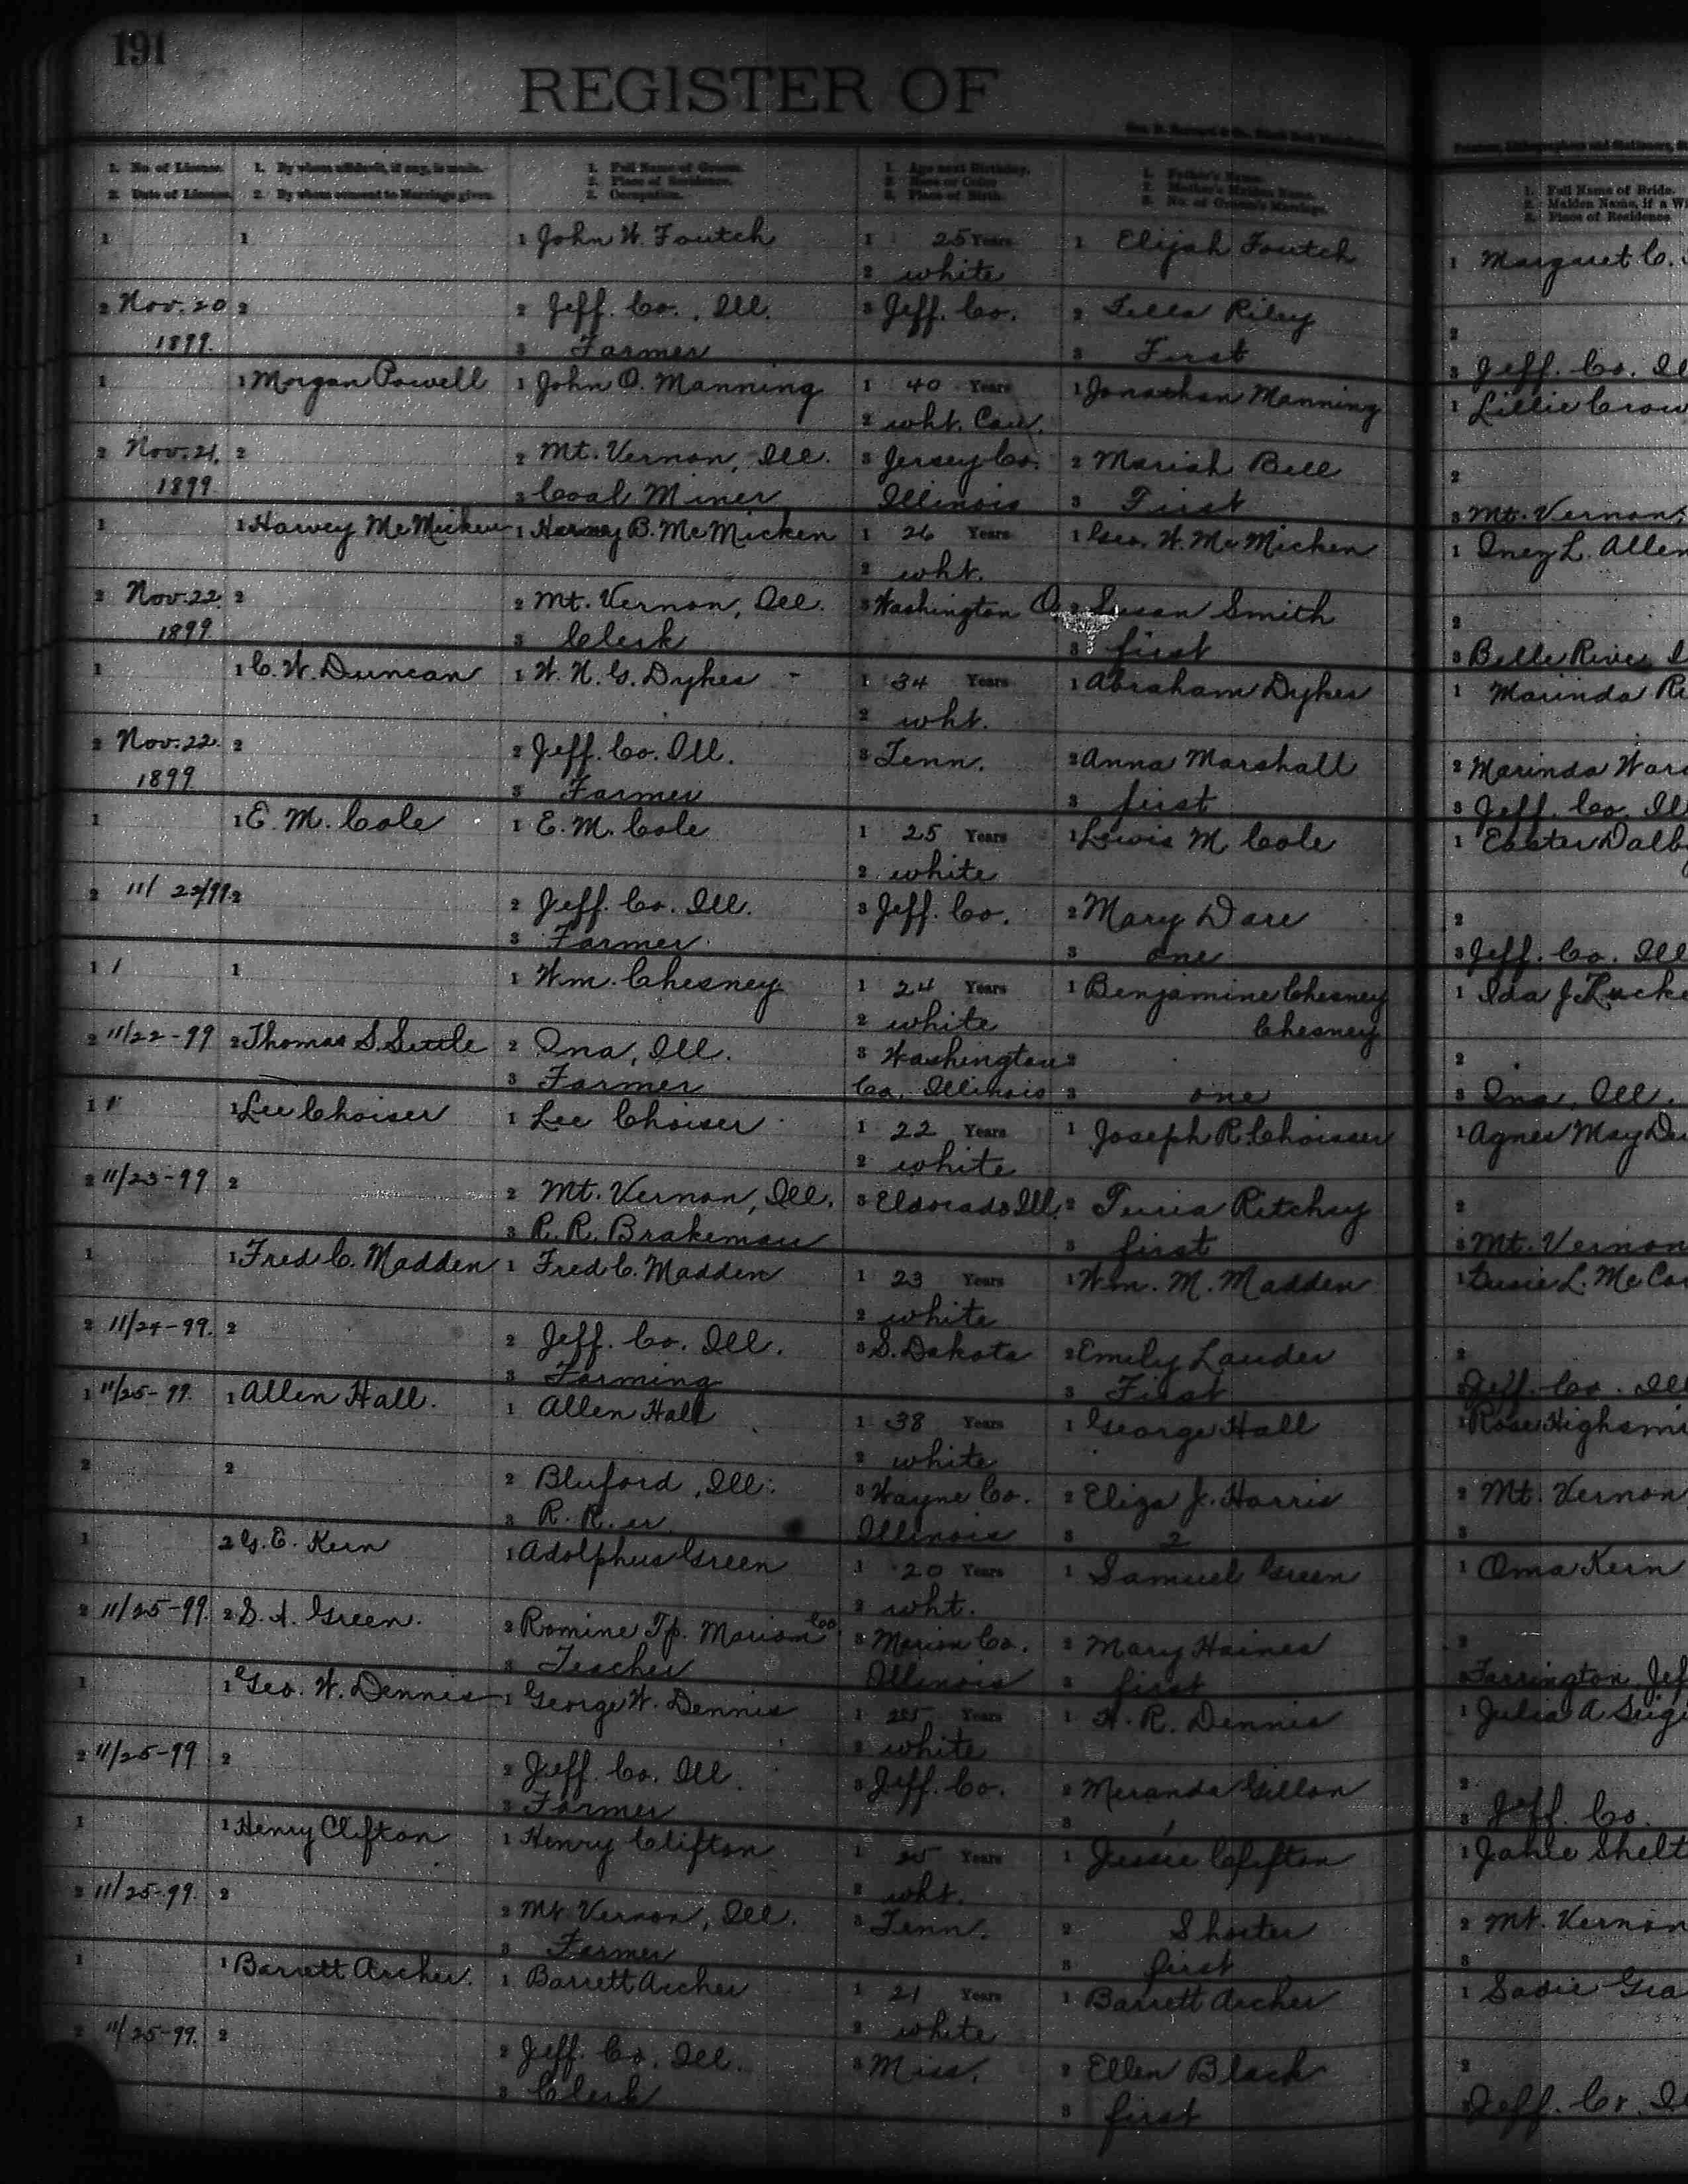 191
REGISTER OF
1. No. of License.
2. Date of License.
1. By whom affidavit, if any, is made.
2. By whom consent to Marriage given.
1. Full Name of Groom.
2. Place of Residence.
3. Occupation.
1. Age next Birthday.
2. Race or Color
3. Place of Birth.
1. Father's Name.
2. Mother's Maiden Name.
3. No. of Groom's Marriage.
1. Full Name of Bride.
2. Maiden Name, if a Wi
3. Place of Residence
1 1 1 John W. Foutch 1 25 Years 1 Elijah Foutch 1 Margaret C.
2 white
2 Nov. 20 2 2 Jeff. Co., Ill. 3 Jeff. Co. 2 Riley 2
1899. 3 Farmer 3 First 3 Jeff. Co. Il
1 1 Morgan Powell 1 John O. Manning 1 40 Years 1 Jonathan Manning 1 Lillie Crow
2 wht. Cau.
2 Nov. 21, 2 2 Mt. Vernon, Ill. 3 Jersey Co. 2 Mariah Bell 2
1899 3 Coal Miner Illinois 3 First 3 Mt. Vernon,
1 1 Harvey McMicken 1 Harvey B. McMicken 1 26 Years 1 Geo. W. McMicken 1 Inez L. Allen
2 wht.
2 Nov. 22. 2 2 Mt. Vernon, Ill. 3 Washington 2 Susan Smith 2
1899. 3 Clerk 3 first 3 Belle Rive, I
1 1 C. W. Duncan 1 W. N. G. Dykes - 1 34 Years 1 Abraham Dykes 1 Marinda Ri
2 wht.
2 Nov. 22. 2 2 Jeff. Co. Ill. 3 Tenn. 2 Anna Marshall 2 Marinda Ward
1899 3 Farmer 3 first 3 Jeff. Co. Il
1 1 E. M. Cole 1 E. M. Cole 1 25 Years 1 Lewis M. Cole 1 Easter Dalb
2 white
2 11/22/99 2 2 Jeff. Co. Ill. 3 Jeff. Co. 2 Mary Dare 2
3 Farmer 3 one 3 Jeff. Co. Ill
1 1 1 Wm. Chesney 1 24 Years 1 Benjamine Chesney 1 Ida J.
2 white Chesney
2 11/22-99 2 Thomas S. Settle 2 Ina, Ill. 3 Washington 2 2
3 Farmer Co. Illinois 3 one 3 Ina, Ill.
1 1 Lee Choiser 1 Lee Choiser 1 22 Years 1 Joseph R. Choisser 1 Agnes May De
2 white
2 11/23-99 2 2 Mt. Vernon, Ill. 3 Eldorado Ill. 2 Ritchey 2
3 R. R. Brakeman 3 first 3 Mt. Vernon
1 1 Fred C. Madden 1 Fred C. Madden 1 23 Years 1 Wm. M. Madden 1 Susie L. McCo
2 white
2 11/24-99. 2 2 Jeff. Co. Ill. 3 S. Dakota 2 Emily Lauder 2
3 Farming 3 First 3 Jeff. Co. Ill
1 11/25-99. 1 Allen Hall. 1 Allen Hall 1 38 Years 1 George Hall 1 Rose Highsmi
2 white
2 2 2 Bluford, Ill. 3 Wayne Co. 2 Eliza J. Harris 2 Mt. Vernon
3 R. R. er Illinois 3 2 3
1 2 G. E. Kern 1 Adolphus Green 1 20 Years 1 Samuel Green 1 Oma Kern
2 wht.
2 11/25-99. 2 S. A. Green. 2 Romine Tp. Marion Co. 3 Marion Co. 2 Mary Haines 2
3 Teacher Illinois 3 first 3 Farrington Jef
1 1 Geo. W. Dennis 1 George W. Dennis 1 Years 1 H. R. Dennis 1 Julia A Seig
2 white
2 11/25-99 2 2 Jeff. Co. Ill. 3 Jeff. Co. 2 Meranda Gillon 2
3 Farmer 3 1 3 Jeff. Co.
1 1 Henry Clifton 1 Henry Clifton 1 Years 1 Jessie Clifton 1 Shelt
2 wht.
2 11/25-99. 2 2 Mt. Vernon, Ill. 3 Tenn. 2 Shorter 2 Mt. Vernon
3 Farmer 3 first 3
1 1 Barrett Archer. 1 Barrett Archer 1 21 Years 1 Barrett Archer 1 Sadie Gra
2 white
2 11/25-99. 2 2 Jeff. Co. Ill. 3 Miss. 2 Ellen Black 2
3 Clerk 3 first 3 Jeff. Co. Il